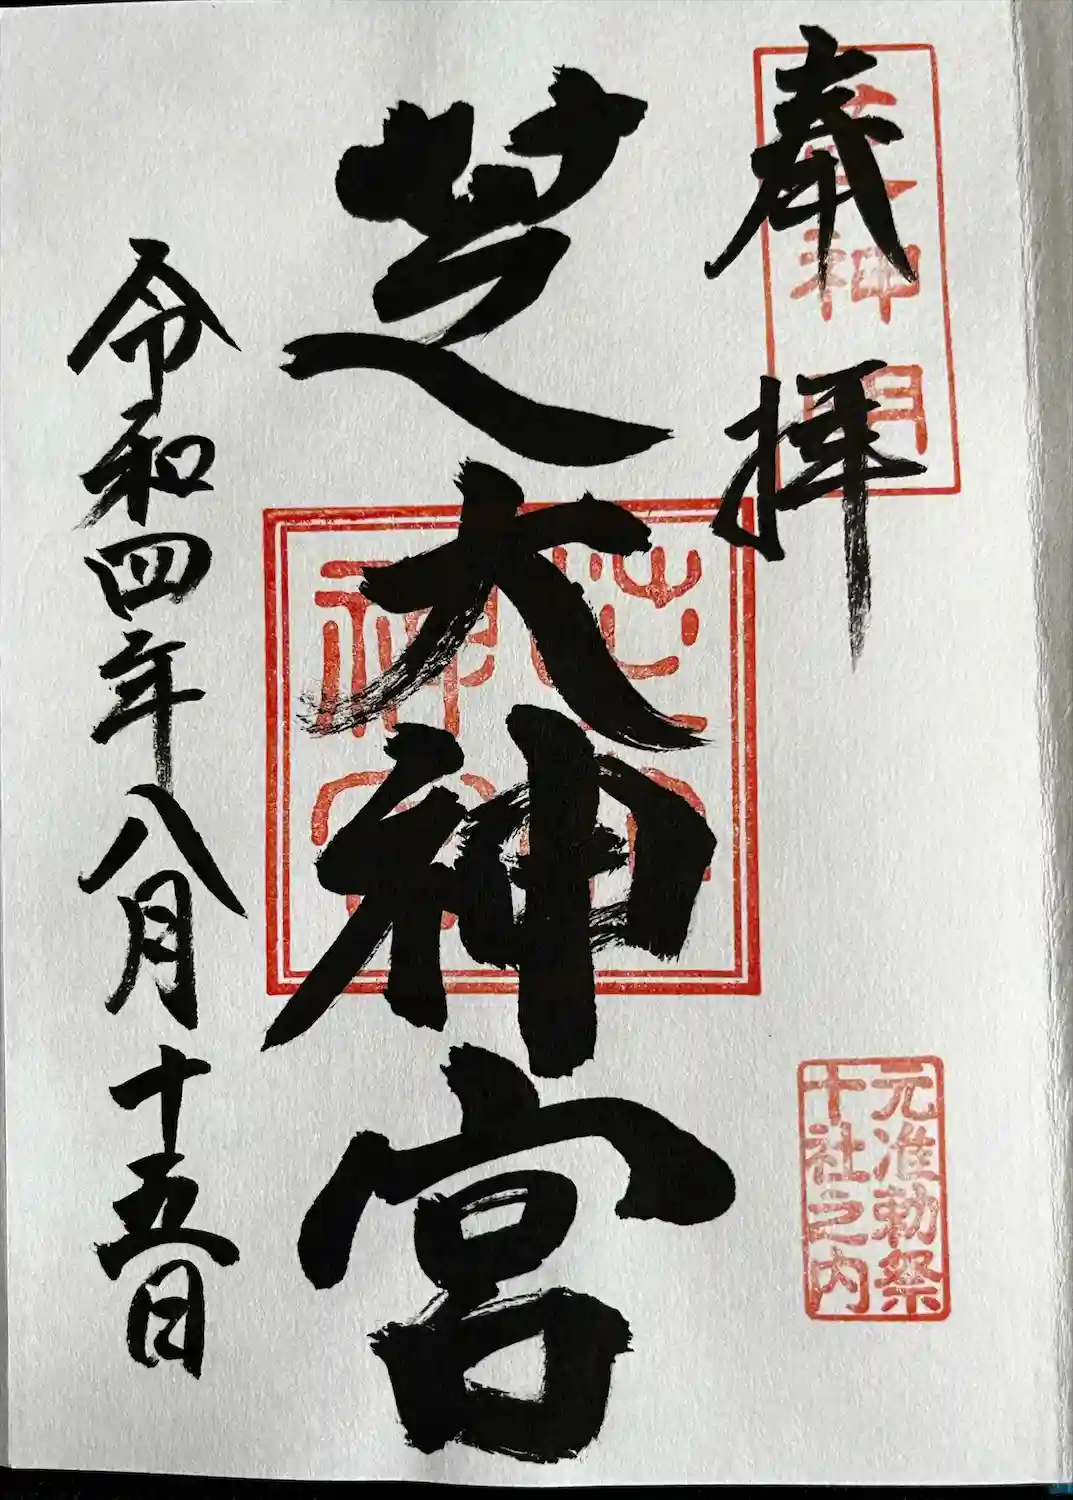 奉拝
芝神明
元准勅祭
十社之内
芝大神宮
芝大
神宮
令和四年八月十五日